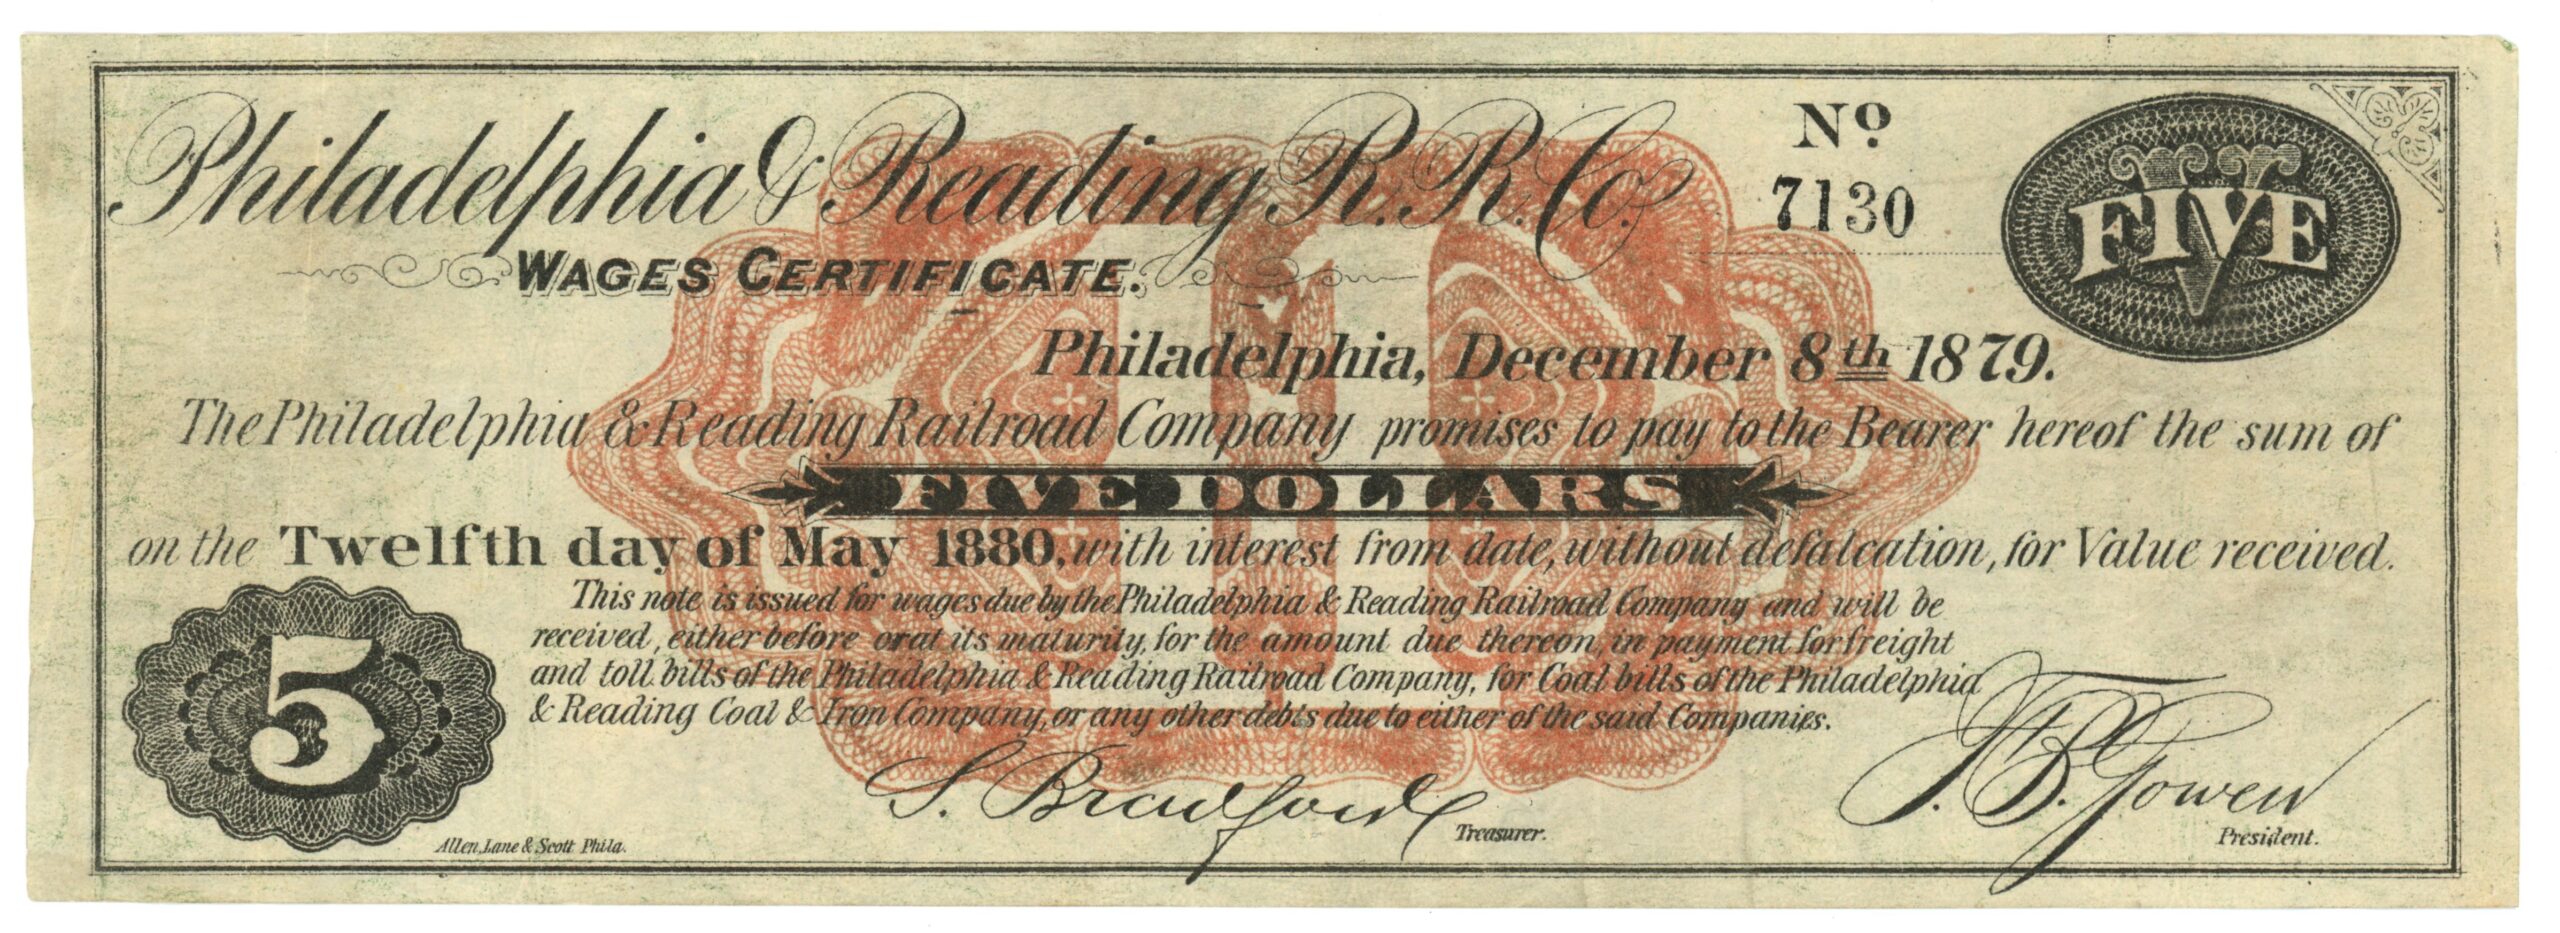 Philadelphia & Reading R.R. Co.
No
7130
FIVE
WAGES CERTIFICATE.
Philadelphia, December 8th 1879.
The Philadelphia & Reading Railroad Company promises to pay to the Bearer hereof the sum of
FIVE DOLLARS
on the Twelfth day of May 1880, with interest from date, without defalcation, for Value received.
This note is issued for wages due by the Philadelphia & Reading Railroad Company and will be
received, either before or at its maturity, for the amount due thereon, in payment for freight
and toll bills of the Philadelphia & Reading Railroad Company, for Coal bills of the Philadelphia
& Reading Coal & Iron Company, or any other debts due to either of the said Companies.
5
S. Bradford
Treasurer.
F. B. Gowen
President.
Allen, Lane & Scott Phila.